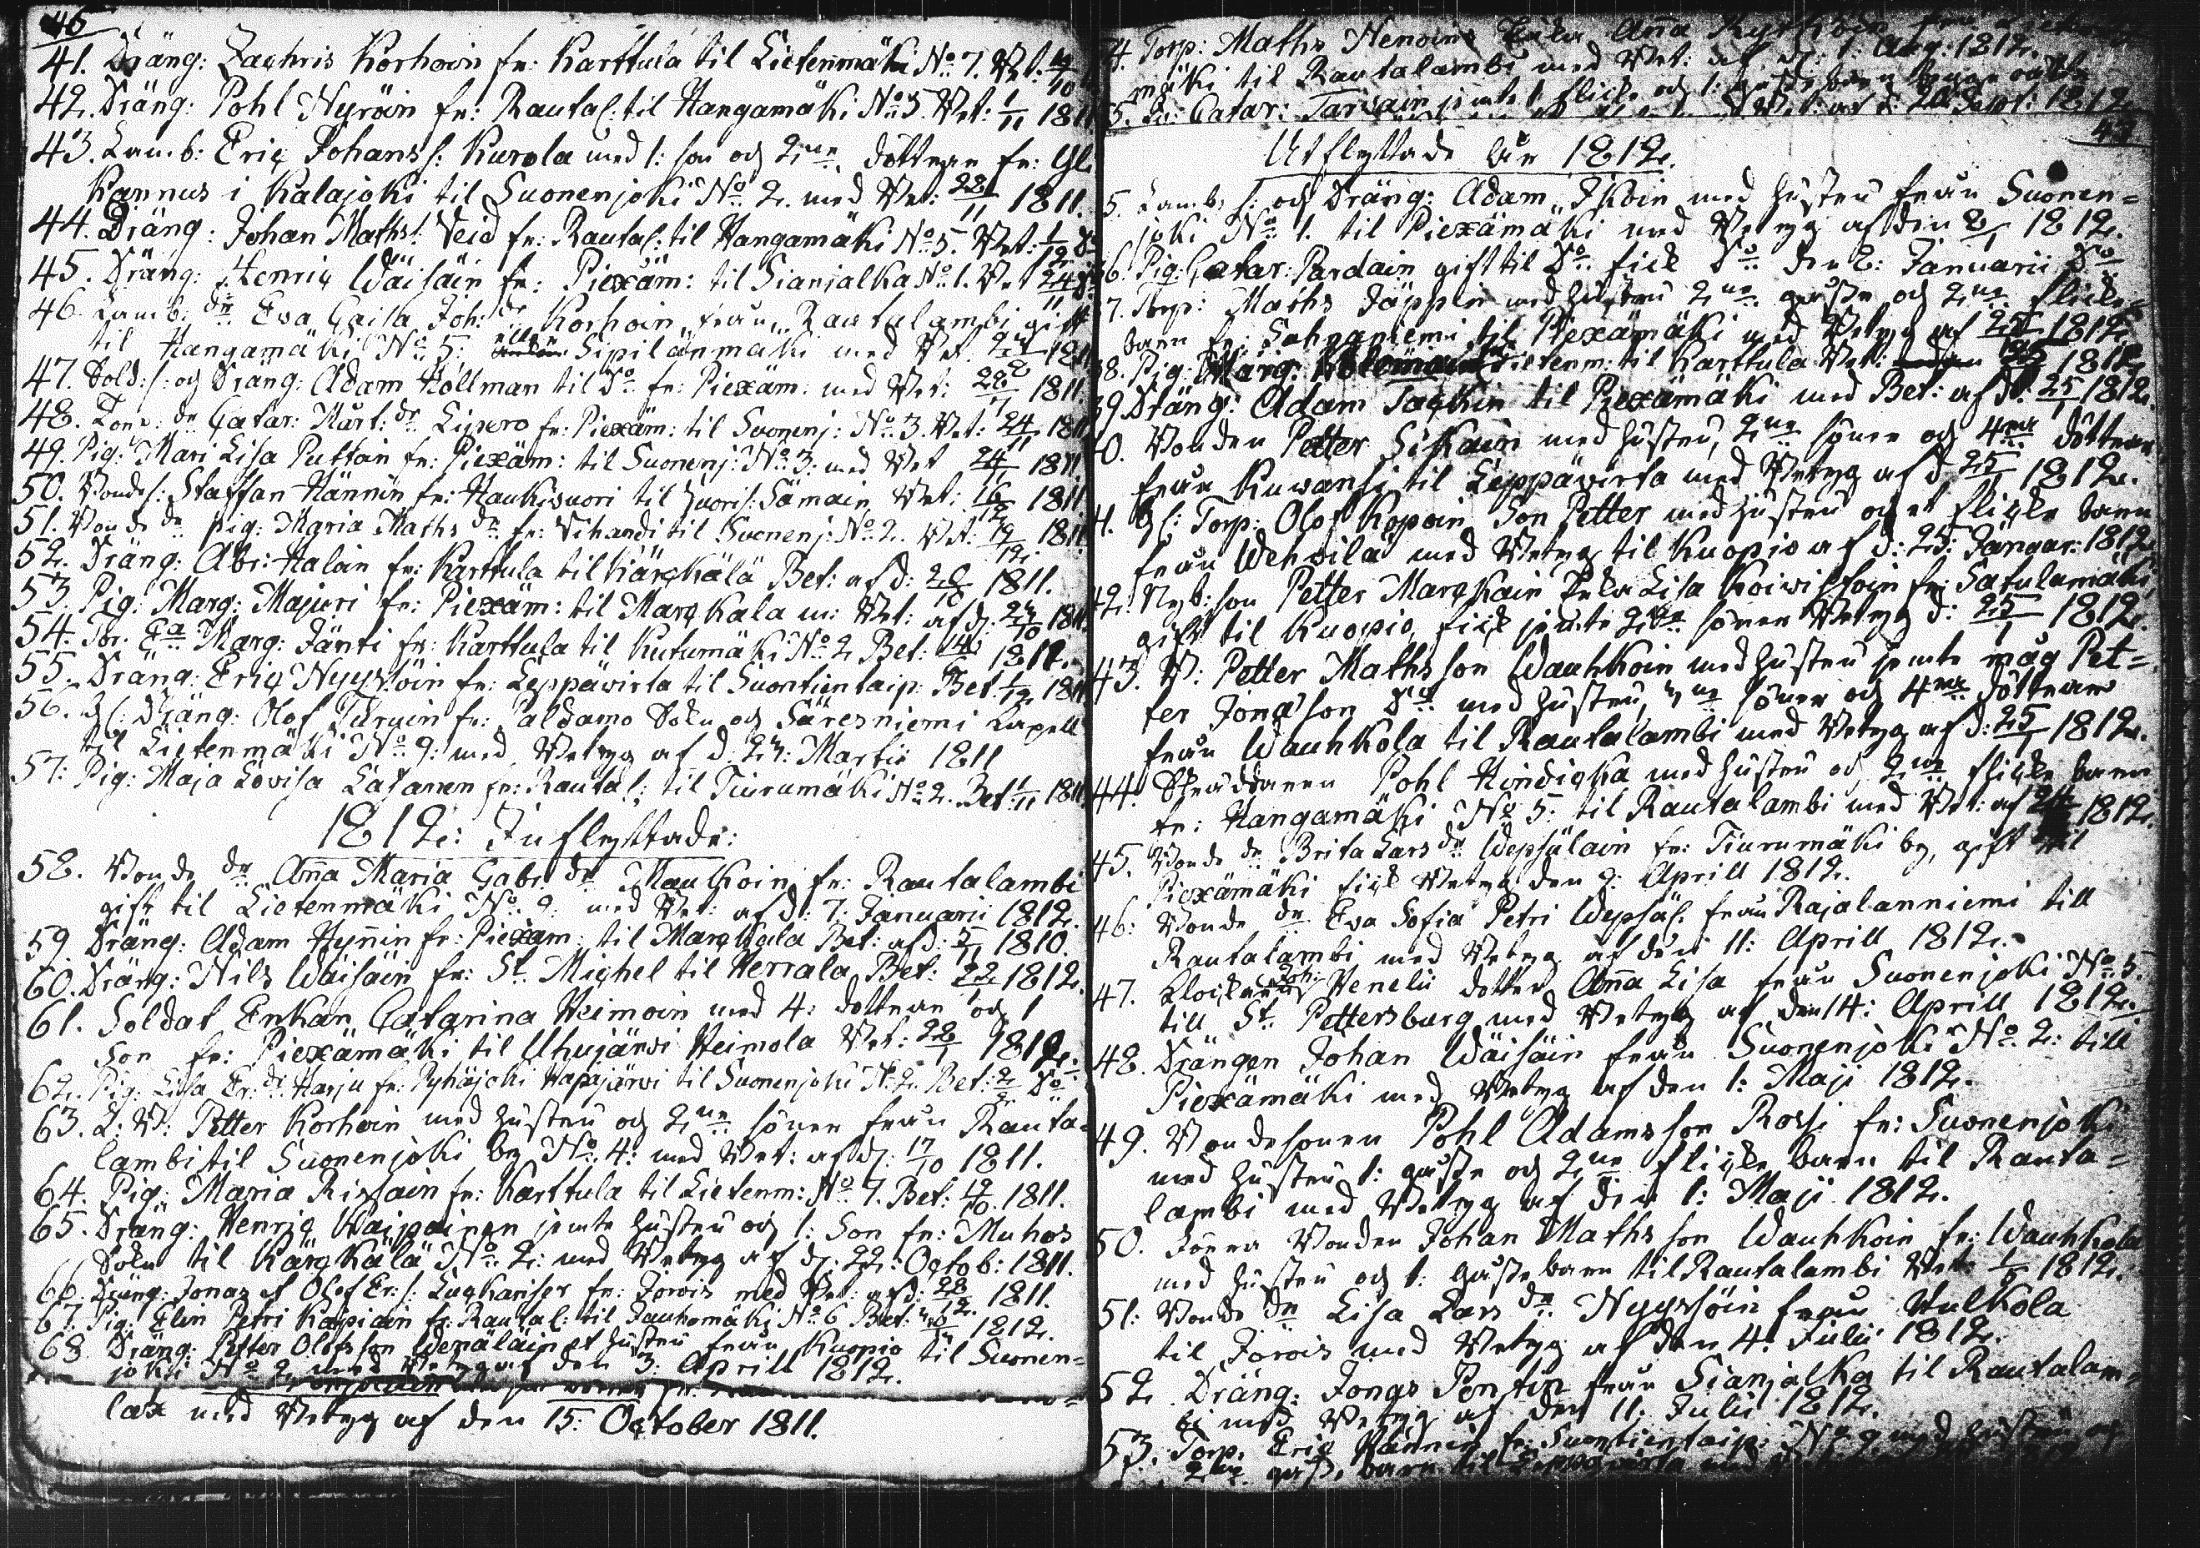 46
41. Dräng: Zachris Korhoin fr: Karttula til Lietenmäki No 7. Bet. 19/10
42. Dräng: Pohl Nyröin fr: Rautal: til Hangamäki No 5. Bet: 1/11 1811
43. Lamb: Eric Johans s: Kurola med 1: son och 2ne döttrar fr: Gl:
Kannus i Kalajoki til Suonenjoki No 2. med Bet: 28/11 1811.
44. Dräng: Johan Maths: Veid fr: Rautal: til Hangamäki No 5. Bet: 1/12
45. Dräng: Henric Wäisäin fr: Piexäm: til Sianjalka No 1. Bet 24/11
46. Lamb: dr Eva Caisa Joh: dr Korhoin från Rautalambi gift
til Hangamäki No 5: eller Sipilänmäki med Bet. 1811
47. Sold: s: och Dräng: Adam Hollman til Do fr: Piexäm: med Bet: 1811.
48. dr Catar: Mårt: dr Lipero fr: Piexäm: til Suonenj: No 3. Bet: 24/11 1811
49. Pig: Mari Lisa Puttoin fr: Piexäm: til Suonenj: No 3: med Bet 24/11 1811
50. Bonde s: Staffan Hännin fr: Haukivuori til Sämäin Bet: 16/12 1811.
51. Bonde dr pig: Maria Maths dr fr: Vihandi til Suonenj: No 2. Bet: 19/12 1811.
52. Dräng: Abr: Haloin fr: Karttula til Kärckälä Bet: af d: 1811.
53. Pig: Marg: Majuri fr: Piexäm: til Marckala m: Bet: af d: 1811.
54. Marg: Jänti fr: Karttula til Kutumäki No 2 Bet: 1811.
55. Dräng: Eric Nyyssöin fr: Leppävirta til Suontientaip: Bet 1811
56. Dräng: Olof fr: Paldamo Sokn och Säresniemi Capell
til Lietenmäki No 9: med Betyg af d. 27: Martii 1811
57: Pig: Maja Lovisa Lasanen fr: Rautal: til Tiurumäki No 2. Bet 1/11 1811
1812: Inflyttade:
58. Bonde dr Anna Maria Gabr: dr Maukoin fr: Rautalambi
gift til Lietenmäki No 9: med Bet: af d: 7: Januarii 1812.
59. Dräng: Adam Hynnin fr: Piexäm: til Marckala Bet: af d: 5/11 1810.
60. Dräng: Nils Wäisäin fr: St. Michel til Herrala Bet: 22/1 1812.
61. Soldat Enkan Catarina Heimoin med 4: döttrar och 1
Son fr: Piexämäki til Uhujärvi Heimola Bet: 28/1 1812.
62. Pig: Lisa Er: dr Harju fr: Pyhäjoki Hapajärvi til Suonenjoki No 2. Bet: Do
63. L: B: Petter Korhoin med hustru och 2ne söner från Rauta=
lambi til Suonenjoki by No 4: med Bet: af d: 17/10 1811.
64. Pig: Maria Rissain fr: Karttula til Lietenm: No 7. Bet: 19/10 1811.
65. Dräng: Henric Kaipainen jemte hustru och 1: Son fr: Muhos
Sokn til Kärckälä No 2: med Betyg af d: 22: Octob: 1811.
66. Dräng: Jonas et Olof Er: s: fr: Jorois med Bet: af d: 28/12 1811.
67. Pig: Elin Petri Kaipiain fr: Rautal: til Jauhomäki No 6 Bet: 1812.
68 Dräng: Petter Olofsson Wenäläin et hustru från Kuopio til Suonen=
joki No 2 med Betyg af den 3: Aprill 1812.
lax med Betyg af den 15: October 1811.
4. Torp: Maths Henoins Enka Anna
mäki til Rautalambi med Bet: af d: 1: Aug: 1812.
5. Catar: Tarvain jemte 1 flicke och 1: gosse barn
Bet: af d: 20 Sept: 1812
47
Utflyttade År 1812.
5. Lamb: s: och Dräng: Adam Ikoin med hustru från Suonen=
joki No 1. til Piexämäki med Betyg af den 2/1 1812.
36. Pig: Catar: Pardain gift til Do fick Do den 2: Januarii Do
37. Torp: Maths Jäppin med hustru 2ne gosse och 2ne flicke=
barn fr: til Piexämäki med Betyg af 25/1 1812.
38. Pig: Marg: Lietenm: til Karttula Bet: 1812.
39 Dräng: Adam Tackin til Piexämäki med Bet: af d: 25/1 1812.
40. Bonden Petter Sikain med hustru, 2ne söner och 4ra döttrar
från Kuvansi til Leppävirta med Betyg af d: 25/1 1812.
41. Torp: Olof Kopoin Son Petter med hustru och et flicke barn
från Wehvilä med Betyg til Kuopio af d: 25: Januar: 1812
42. Nyb: son Petter Marckain Enka Lisa Koivistoin fr: Satulamäki
gift til Kuopio, fick jemte 2ne söner Betyg d: 25/1 1812.
43. B: Petter Mathsson Wauhkoin med hustru jemte måg Pet=
ter Jonasson Do med hustru, söner och 4ra döttrar
från Wauhkola til Rautalambi med Betyg af d: 25/1 1812.
44. Skräddaren Pohl Hindicka med hustru och 2ne flicke barn
fr: Hangamäki No 5: til Rautalambi med Bet: af 1812.
45. Bonde dr Brita Lars dr Wepsäläin fr: Tiurumäki by, gift til
Piexämäki fick Betyg den 9: Aprill 1812.
46: Bonde dr Eva Sofia Petri Wepsäl: från Rajalanniemi till
Rautalambi med Betyg af den 11: Aprill 1812.
47. Klockar Joh: Henelii dotter Anna Lisa från Suonenjoki No 5:
till St. Pettersburg med Betyg af den 14: Aprill 1812.
48. Drängen Johan Wäisäin från Suonenjoki No 2: till
Piexämäki med Betyg af den 1: Maji 1812.
49. Bondesonen Pohl Adamsson Rossi fr: Suonenjoki
med hustru 1: gosse och 2ne flicke barn til Rauta=
lambi med Betyg af den 1: Maji 1812.
50. Förra Bonden Johan Mathsson Wauhkoin fr: Wauhkola
med hustru och 1: gosse barn til Rautalambi Bet: 1/5 1812.
51: Bonde dr Lisa Lars dr Nyyssöin från Hulkola
til Jorois med Betyg af den 4: Julii 1812.
52. Dräng: Jonas Pentin från Sianjalka til Rautalam=
bi med Betyg af den 11. Julii 1812.
53. Torp: Eric Hännin fr: Suontientaip: No 9 med hustru och
2ne gosse barn til Leppävirta med